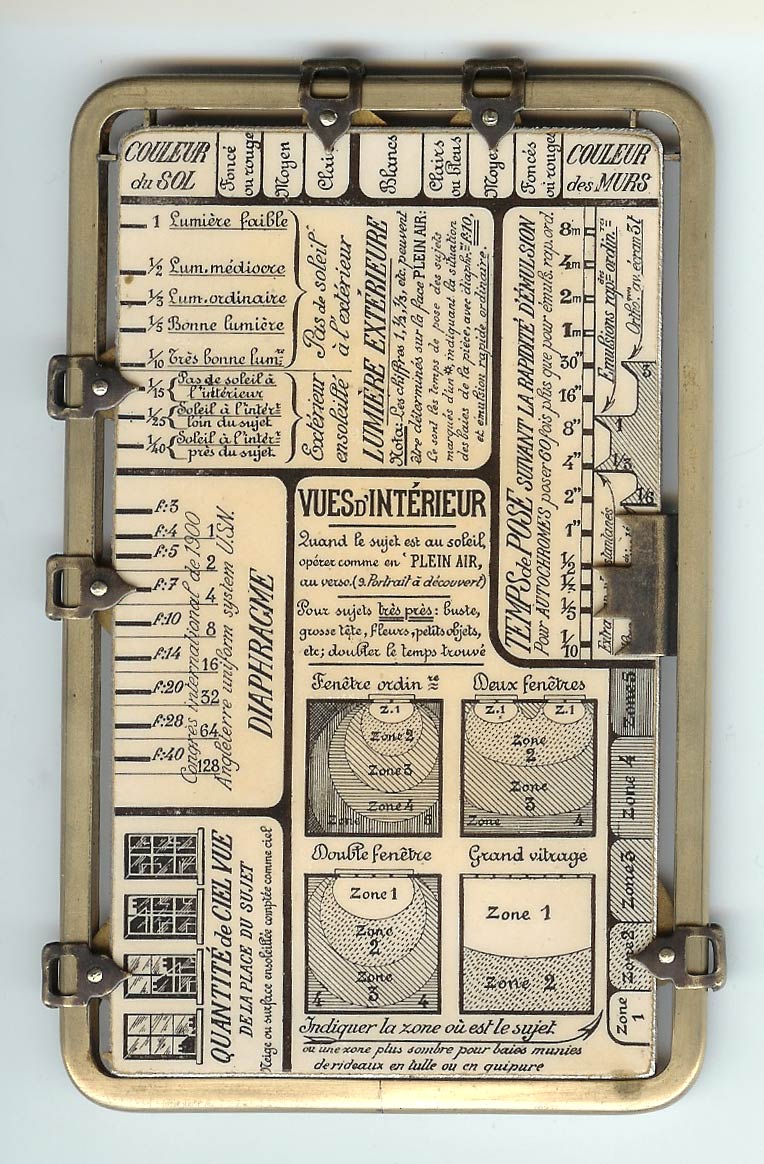 COULEUR
du SOL
Foncé
ou rouge
Moyen
Clair
Blancs
Clairs
ou bleus
Moye
Foncés
ou rouge
COULEUR
des MURS
1 Lumière faible
½ Lum. médiocre
⅓ Lum. ordinaire
⅕ Bonne lumière
1/10 Très bonne lumre
Pas de soleil
à l'extérieur
1/15 Pas de soleil à
l'intérieur
1/25 Soleil à l'intérr
loin du sujet
1/40 Soleil à l'intérr
près du sujet
Extérieur
ensoleillé
LUMIÈRE EXTÉRIEURE
Nota: Les chiffres 1, ½, ⅓, etc, peuvent
être déterminés sur la face PLEIN AIR:
Ce sont les temps de pose des sujets
marqués d'un *, indiquant la situation
des baies de la pièce, avec diaphr. = f:10,
et émulsion rapide ordinaire.
TEMPS de POSE SUIVANT LA RAPIDITÉ D'ÉMULSION
Pour AUTOCHROMES poser 60 fois plus que pour émuls. rap. ord.
8m
4m
2m
1m
30"
16"
8"
4"
2"
1"
½
¼
⅕
1/10
Emulsions rapdes ordin.res
Orthomes av. écran 3
3
1
⅓
1/6
Extra
f:3
f:4 1
f:5 2
f:7 4
f:10 8
f:14 16
f:20 32
f:28 64
f:40 128
Congrès international de 1900
Angleterre uniform system U.S.N.
DIAPHRAGME
VUES D'INTÉRIEUR
Quand le sujet est au soleil,
opérer comme en PLEIN AIR,
au verso. (9. Portrait à découvert)
Pour sujets très près: buste,
grosse tête, fleurs, petits objets,
etc; doubler le temps trouvé
Fenêtre ordinre
Z.1
Zone 2
Zone 3
Zone 4
Zone 5
Deux fenêtres
Z.1 Z.1
Zone
2
Zone
3
Zone 4
Double fenêtre
Zone 1
Zone
2
Zone
3
4 4
Grand vitrage
Zone 1
Zone 2
Indiquer la zone où est le sujet
ou une zone plus sombre pour baies munies
de rideaux en tulle ou en guipure
Zone 5
Zone 4
Zone 3
Zone 2
Zone
1
QUANTITÉ de CIEL VUE
DE LA PLACE DU SUJET
Neige ou surface ensoleillée comptée comme ciel